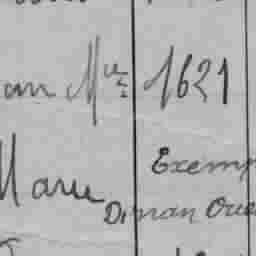 an Mle 1621
Marie Exemp
Dinan Oue